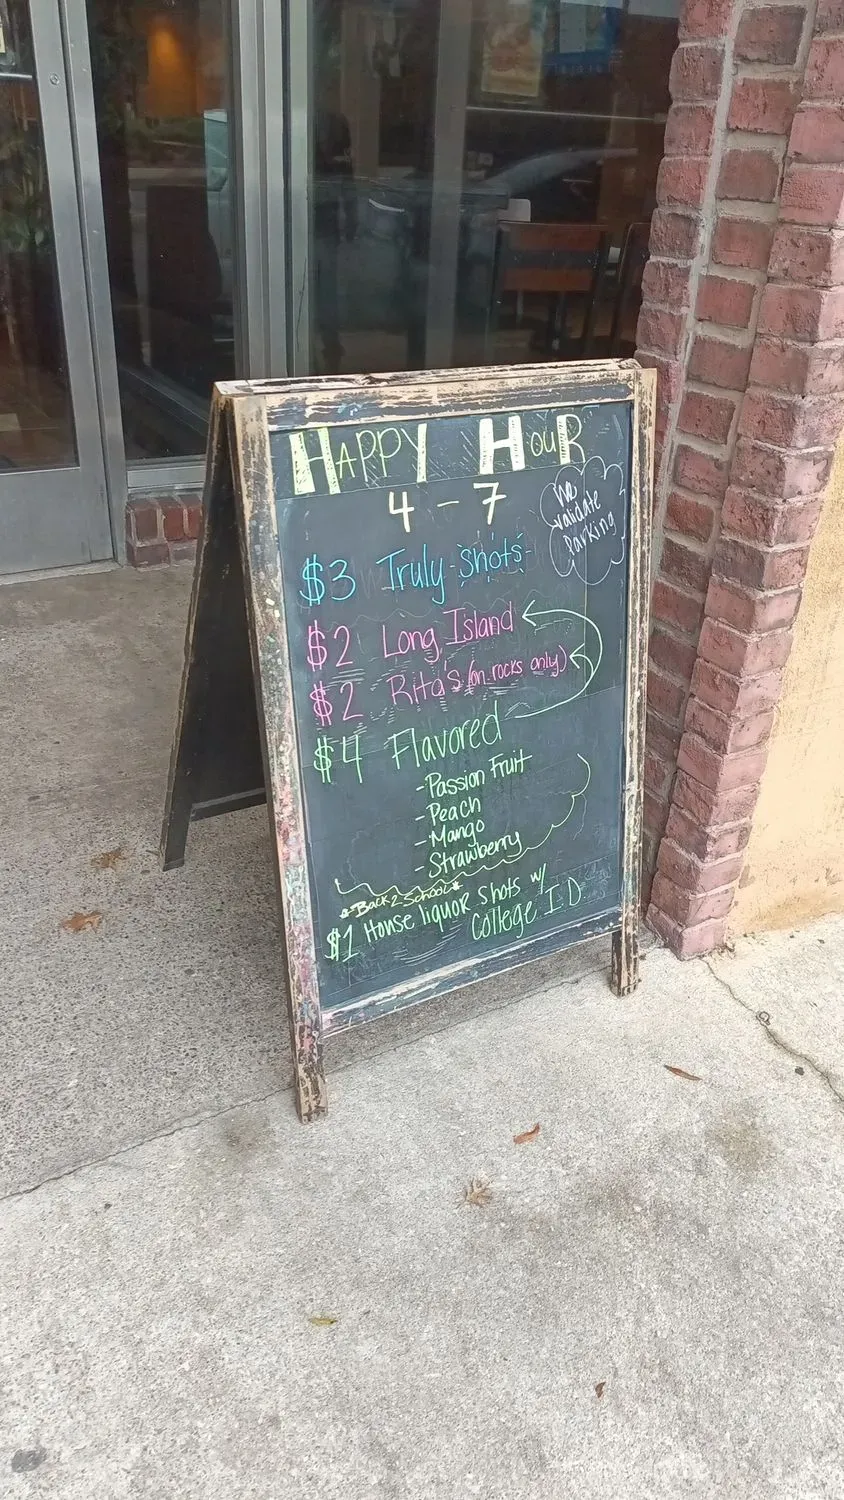 HAPPY HOUR
4 - 7
We validate Parking
$3 Truly shots
$2 Long Island
$2 Rita's (on rocks only)
$4 Flavored
- Passion Fruit
- Peach
- Mango
- Strawberry
*Back 2 School*
$1 House liquor shots w/
College I.D.